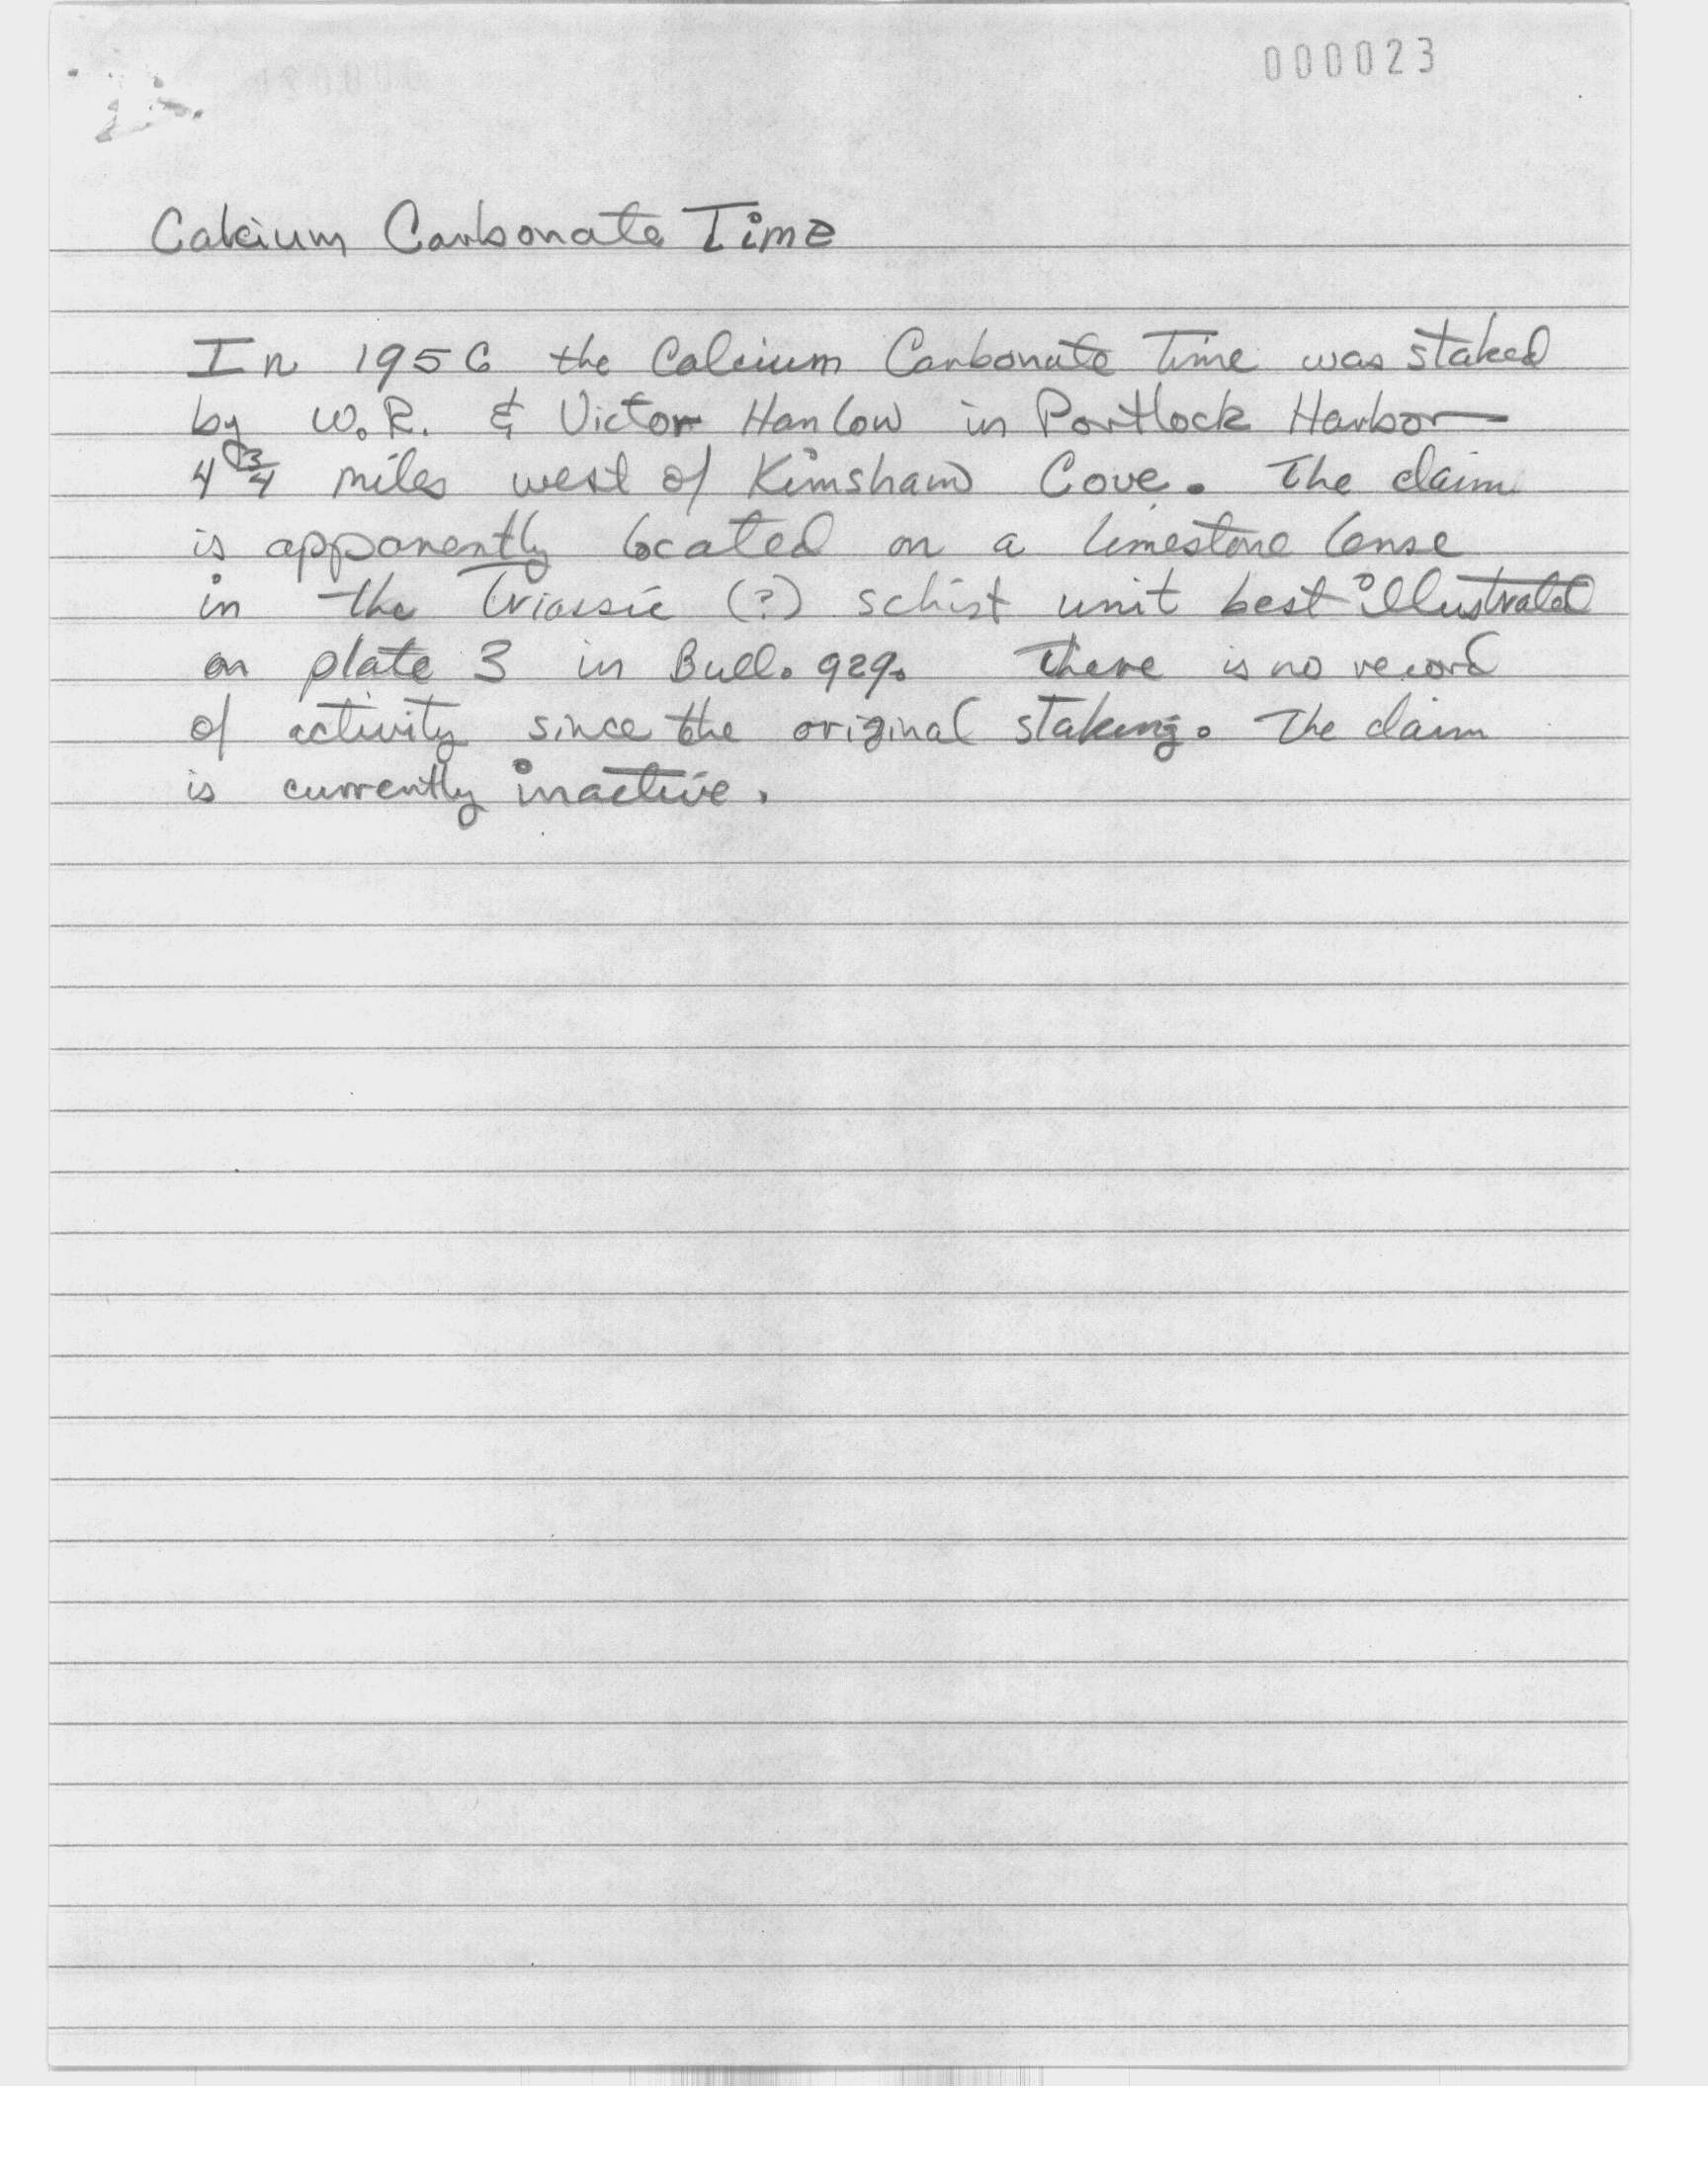 000023
Calcium Carbonate Time
In 1956 the Calcium Carbonate Time was staked
by W.R. & Victor Hanlow in Portlock Harbor
4 3/4 miles west of Kimshaw Cove. The claim
is apparently located on a limestone lense
in the Triassic (?) schist unit best illustrated
on plate 3 in Bull. 929. There is no record
of activity since the original staking. The claim
is currently inactive.